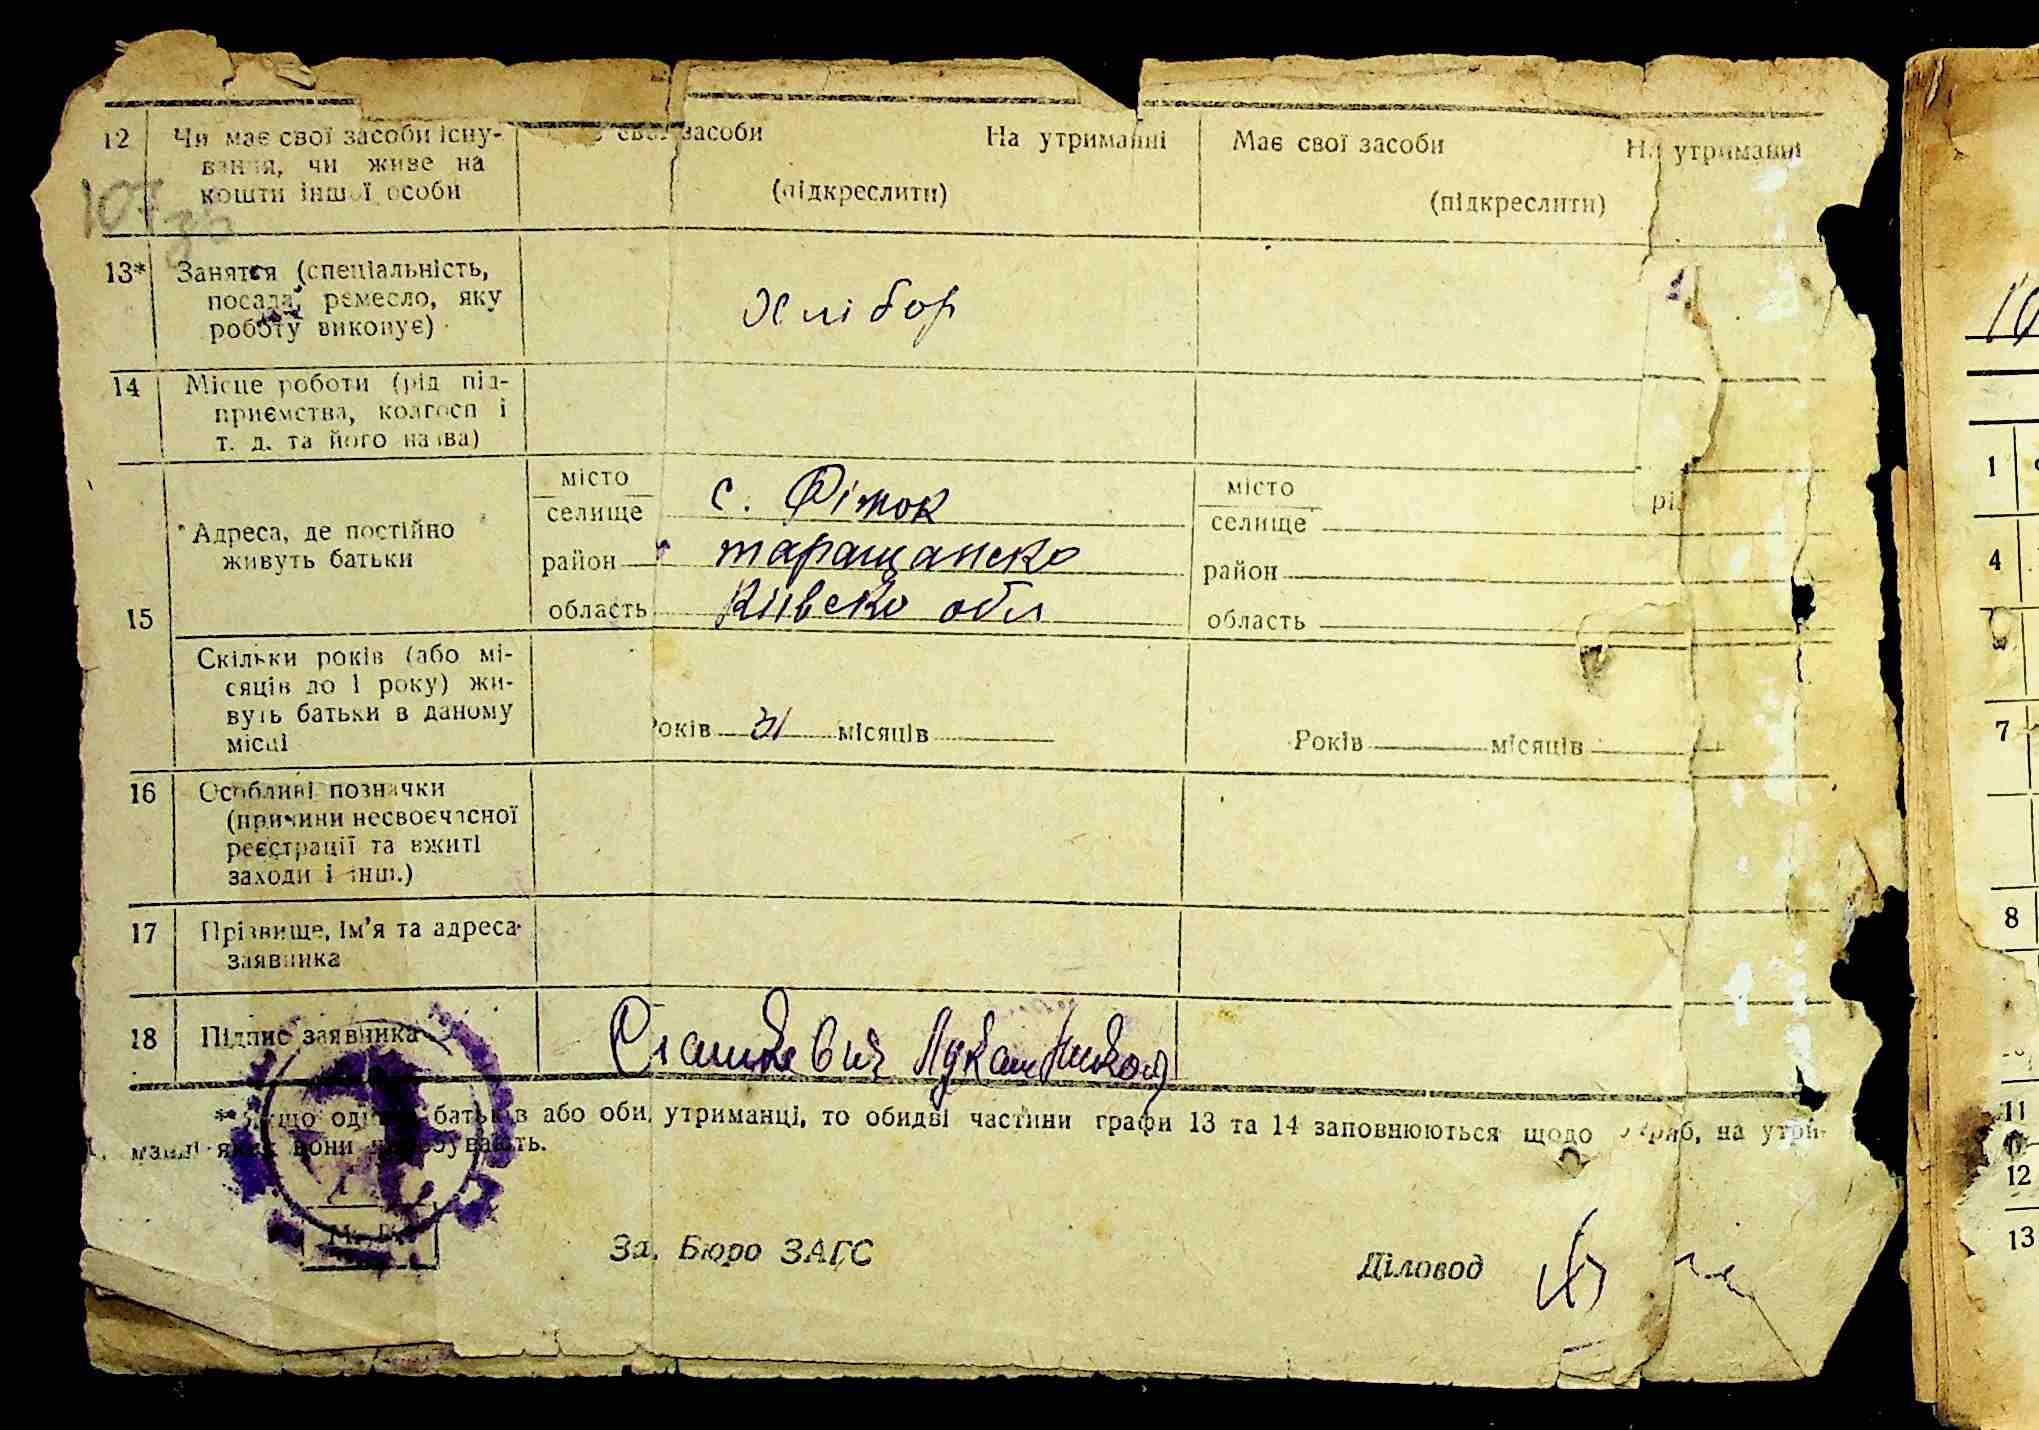 12 Чи має свої засоби існу-
вання, чи живе на
кошти іншої особи
свої засоби На утриманні
(підкреслити)
Має свої засоби На утриманні
(підкреслити)
107
13* Заняття (спеціальність,
посада, ремесло, яку
роботу виконує)
Хлібор
14 Місце роботи (рід під-
приємства, колгосп і
т. д. та його назва)
15 Адреса, де постійно
живуть батьки
місто
селище с. Фіток
район таращанско
область Київско обл
місто
селище
район
область
Скільки років (або мі-
сяців до 1 року) жи-
вуть батьки в даному
місці
Років 31 місяців
Років місяців
16 Особливі позначки
(причини несвоєчасної
реєстрації та вжиті
заходи і інш.)
17 Прізвище, ім’я та адреса
заявника
18 Підпис заявника
Станкевич Лукаш
батьків або оби, утриманці, то обидві частини графи 13 та 14 заповнюються щодо на утри-
вони
М. П.
За. Бюро ЗАГС Діловод
1
4
7
8
11
12
13